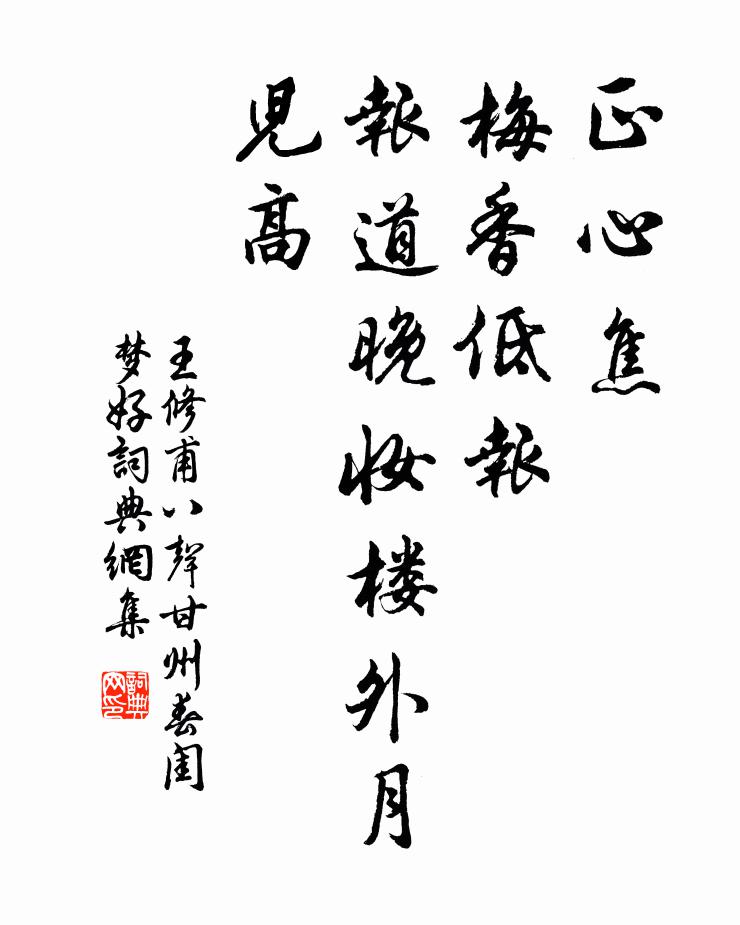 正心焦
梅香低報
報道晚妝楼外月
児高
王修甫八聲甘州春閨
梦好詞典網集
詞典
网印